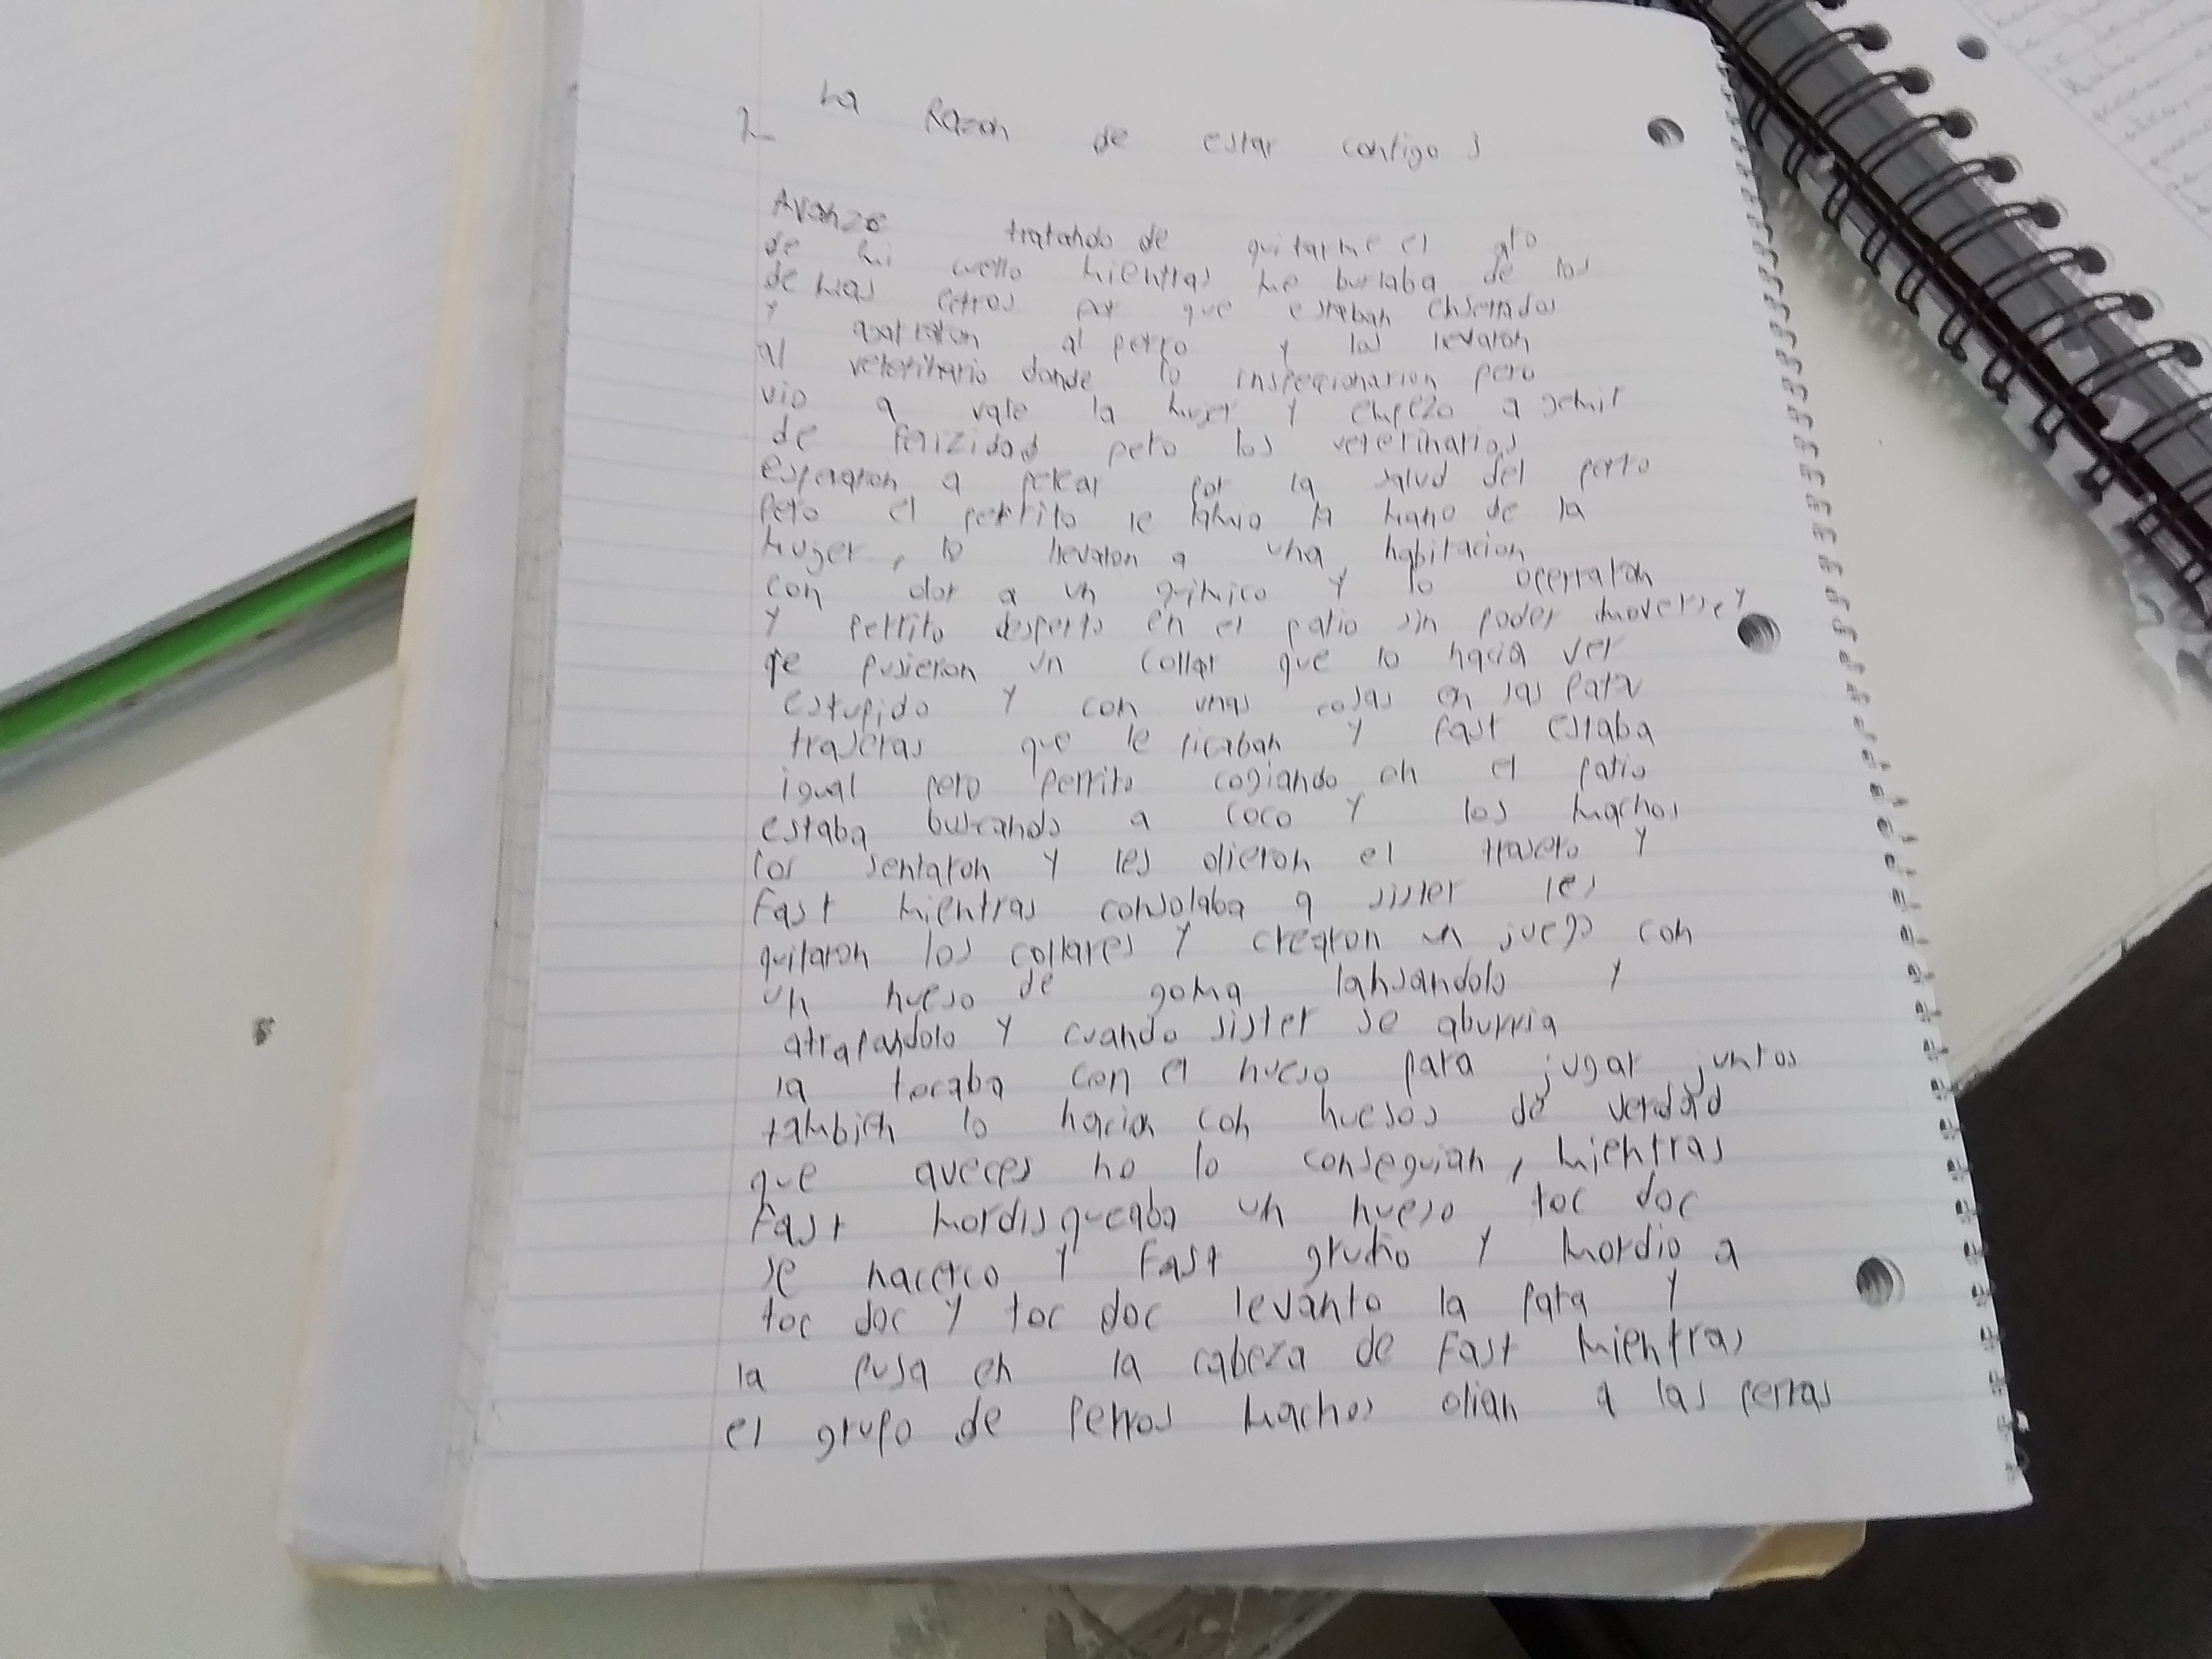 La Razon de estar contigo 3
Avanze tratando de quitarme el
de mi cuello mientras me burlaba de los
de mas perros por que estaban enserrados
y agarraron al perro y los levaron
al veterinario donde lo inspecionarion pero
vio a la mujer y empezo a gemir
de felizidad pero los veterinarios
esperaron a pelear por la salud del perro
pero el perrito le lamio la mano de la
muger, lo llevaron a una habitacion
con olor a un quimico y lo operraron
y perrito desperto en el patio sin poder moverse y
le pusieron un collar que lo hacia ver
estupido y con unas cosas en las pata
traseras que le picaban y Fast estaba
igual pero perrito cogiando en el patio
estaba buscando a coco y los machos
los sentaron y les olieron el trasero y
Fast mientras consolaba a sister les
quitaron los collares y crearon un juego con
un hueso de goma lansandolo y
atrapandolo y cuando sister se aburria
la tocaba con el hueso para jugar juntos
tambien lo hacia con huesos de verdad
que aveces no lo conseguian, mientras
Fast mordisqueaba un hueso toc doc
se hacerco y Fast gruño y mordio a
toc doc y toc doc levanto la pata y
la pusa en la cabeza de Fast mientras
el grupo de perros machos olian a las perras